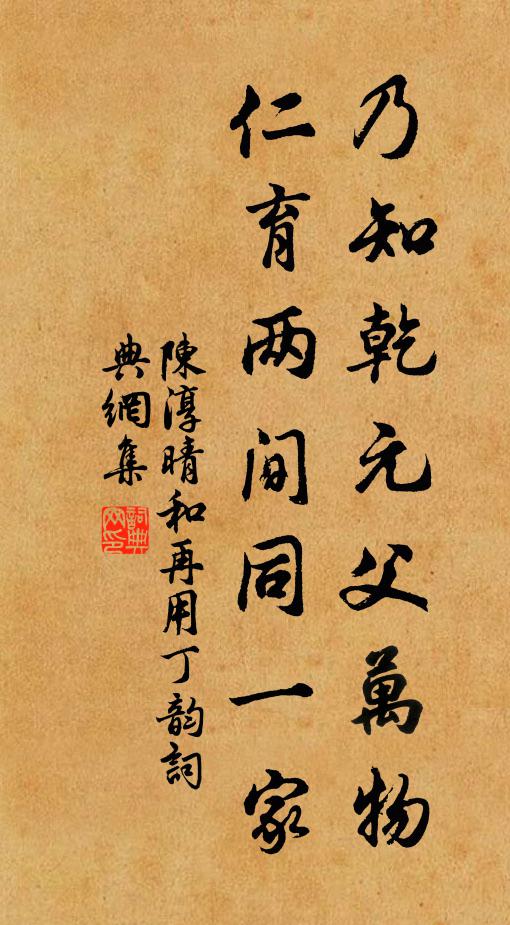 乃知乾元父萬物
仁育两间同一家
陳淳晴和再用丁韵詞
典網集
詞典網印